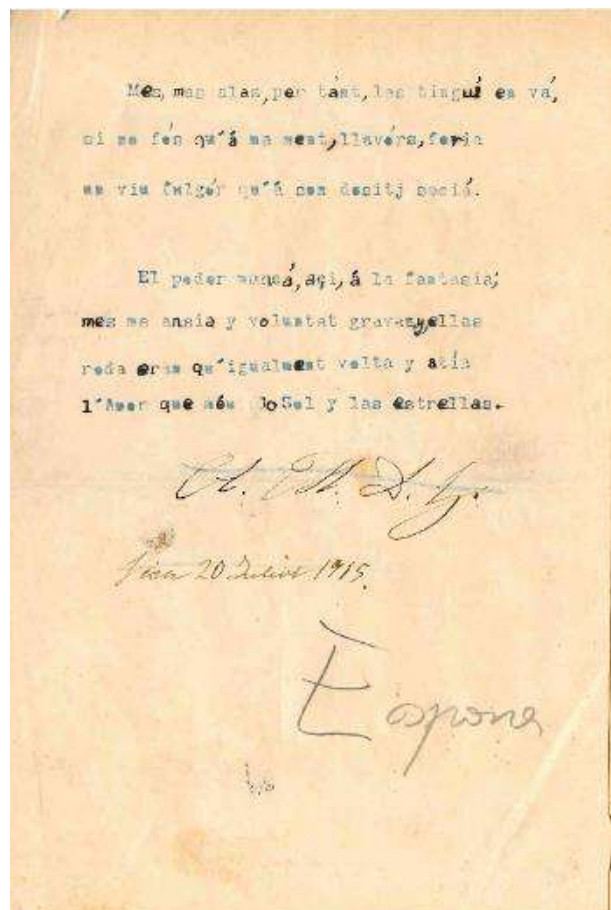 Mes, mes alas, per tánt, las tingui en vá,
si no fós qu'á ma ment, llavórs, feria
un viu fulgór qu'á son desitj seciá.
El poder mancá, açi, á la fantasia;
mes ma ansia y voluntat gravan, ellas
roda eran qu'igualment volta y atía
l'Amor que móu lo Sol y las estrellas.
A. M. D. G.
20 Juliol 1915.
Espona